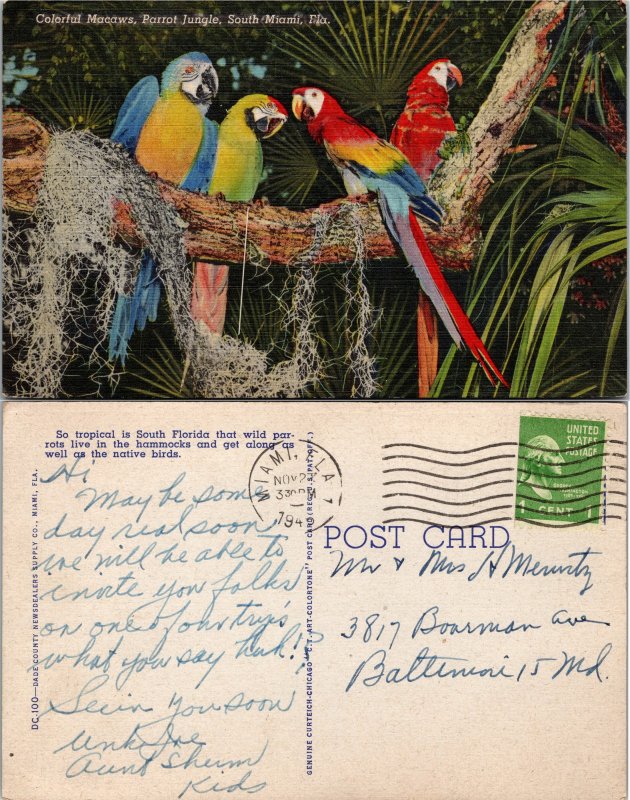 Colorful Macaws, Parrot Jungle, South Miami, Fla.
So tropical is South Florida that wild par-
rots live in the hammocks and get along as
well as the native birds.
Hi
Maybe some
day real soon
we will be able to
invite you folks
on one of our trip's
what you say huh!
Seein you soon
Unk Joe
Aunt Sherm
Kids
DC-100—DADE COUNTY NEWSDEALERS SUPPLY CO., MIAMI, FLA.
GENUINE CURTEICH-CHICAGO "C.T. ART-COLORTONE" POST CARD (REG. U.S. PAT. OFF.)
MIAMI, FLA.
NOV 2
330 PM
194
UNITED
STATES
POSTAGE
1 CENT 1
POST CARD
Mr & Mrs H Merwitz
3817 Boarman Ave
Baltimore 15 Md.